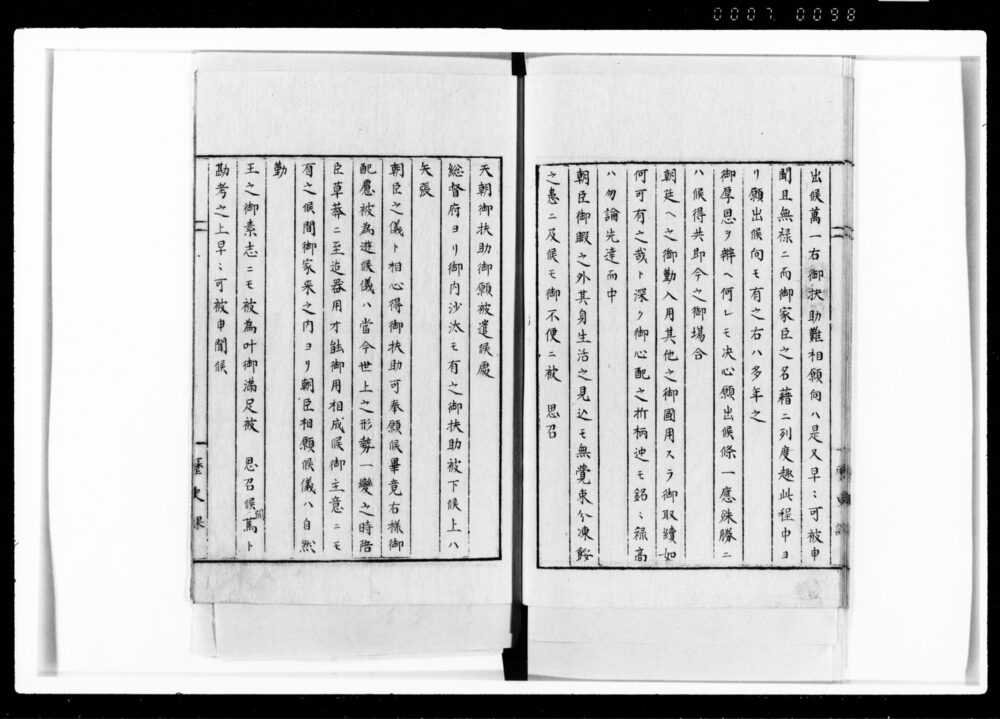 0007 0098
出候萬一右御扶助難相願向ハ是又早ミ可被申
聞且無禄ニ而御家臣之名藉ニ列度趣此程中ヨ
リ願出候向モ有之右ハ多年之
御厚恩ヲ辨ヘ何レモ决心願出候條一應殊勝ニ
ハ候得共即今之御場合
朝廷ヘ之御勤入用其他之御國用スラ御取續如
何可有之哉ト深ク御心配之折柄迚モ銘ミ禄高
ハ勿論先達而中
朝臣御暇之外其身生活之見込モ無覺束分凍餒
之患ニ及候モ御不便ニ被　思召
天朝御扶助御願被遣候處
総督府ヨリ御内沙汰モ有之御扶助被下候上ハ
矢張
朝臣之儀ト相心得御扶助可奉願候畢竟右様御
配慮被為遊候儀ハ當今世上之形勢一變之時陪
臣草莽ニ至迄器用才能御用相成候御主意ニモ
有之候間御家来之内ヨリ朝臣相願候儀ハ自然
勤
王之御素志ニモ被為叶御満足被　思召候間篤ト
勘考之上早ミ可被申聞候
歴史課